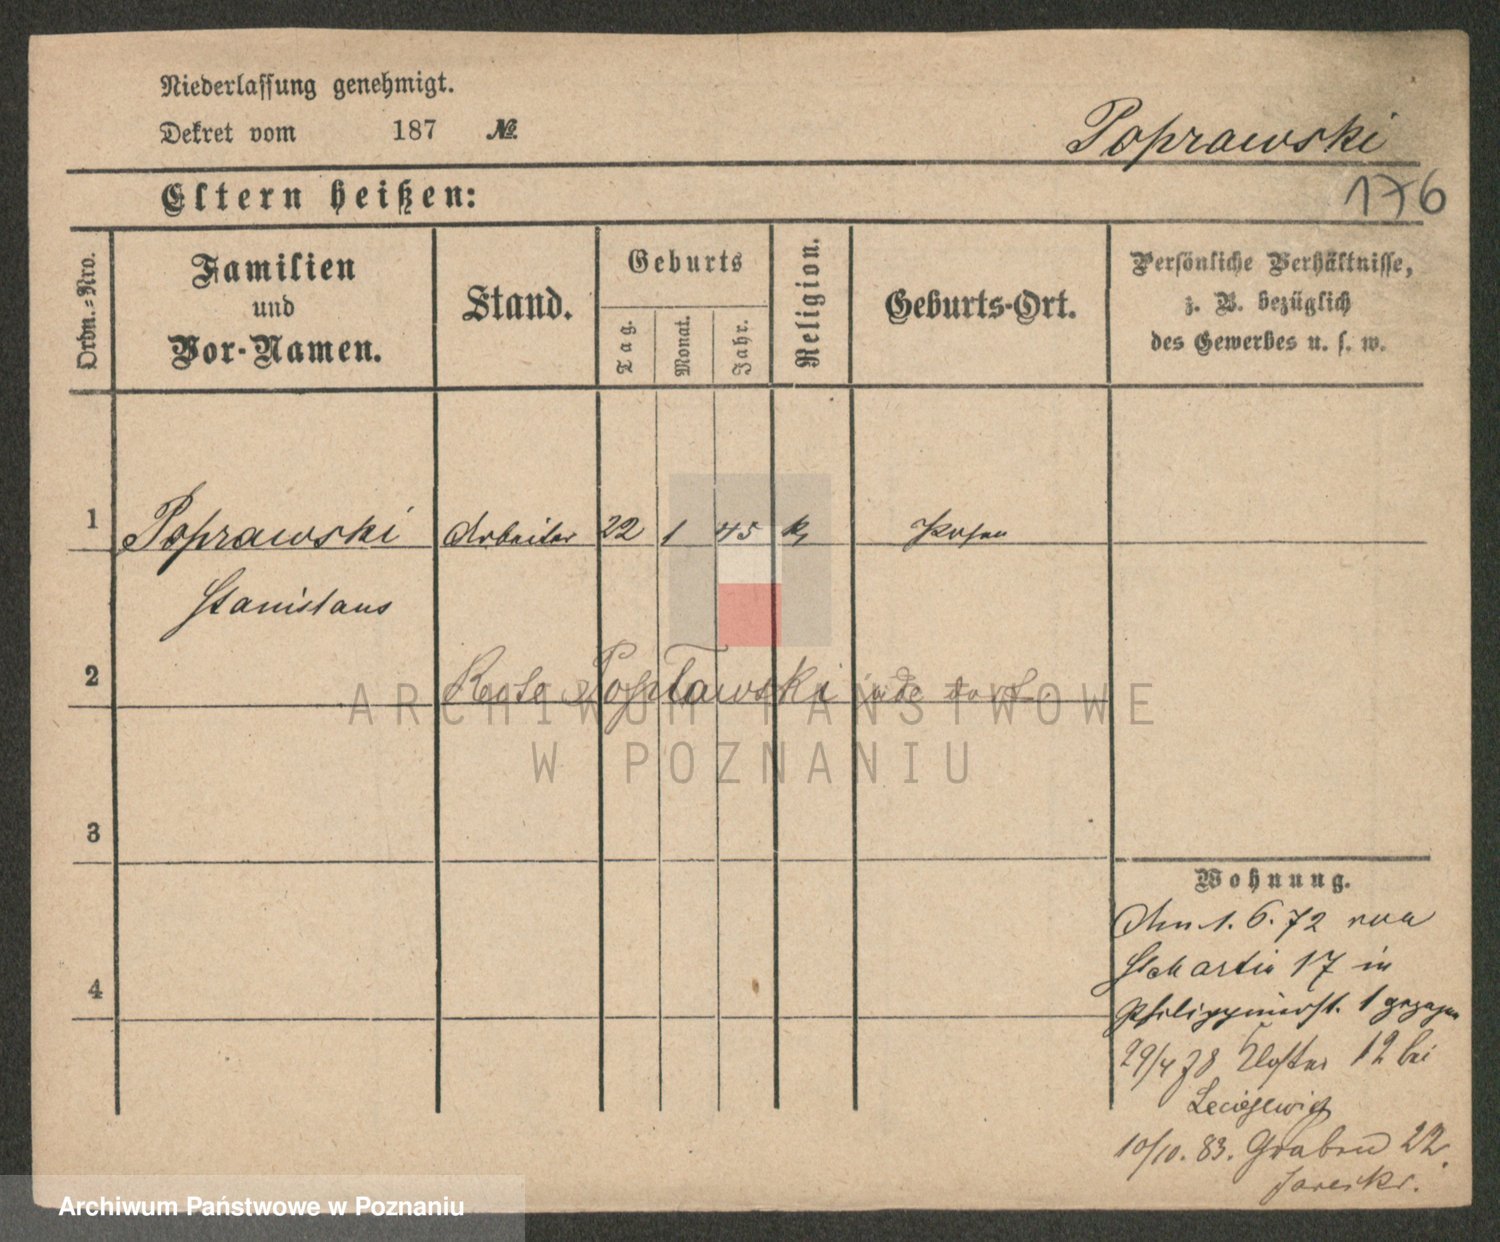 Niederlassung genehmigt.
Dekret vom 187 №
Poprawski
176
Eltern heißen:
Ordn.-Nro.
Familien
und
Vor-Namen.
Stand.
Geburts
Tag.
Monat.
Jahr.
Religion.
Geburts-Ort.
Persönliche Verhältnisse,
z. B. bezüglich
des Gewerbes u. s. w.
1 Poprawski Arbeiter 22 1 45 k Posen
Stanislaus
2 Popławski
ARCHIWUM PAŃSTWOWE
W POZNANIU
3
Wohnung.
Am 1. 6. 72 von
St Martin 17 in
4
Philippinerst. 1 gezogen
29/4 78 Kloster 12 bei
10/10. 83. Graben 22.
Archiwum Państwowe w Poznaniu